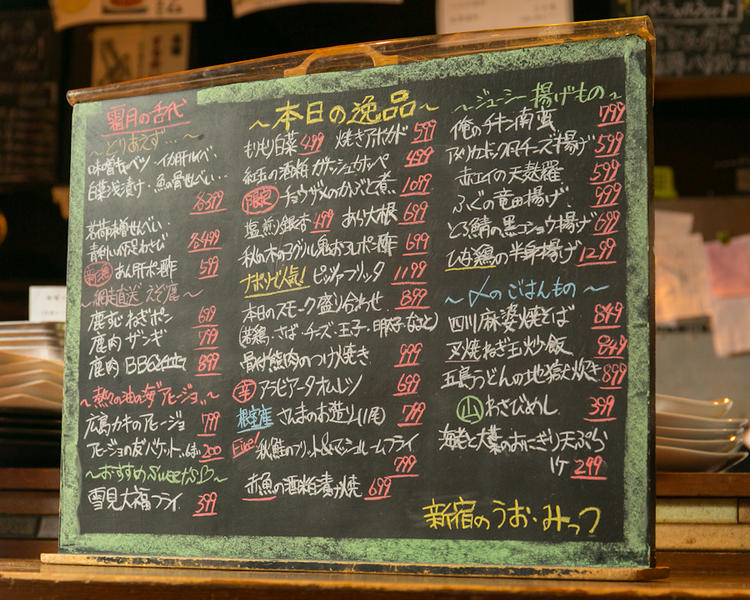 霜月の舌代
～とりあえず…～
味噌キャベツ・イカ肝ルイベ・
白菜浅漬け・魚の骨せんべい…
各399
若荷味噌せんべい・
各499
あん肝ポン酢 599
～網走直送 えぞ鹿～
鹿すじねぎポン 699
鹿肉ザンギ 799
鹿肉BBQ 899
～熱々の油の海"アヒージョ"～
広島カキのアヒージョ 799
アヒージョの友バケット…ぽ 200
～おすすめSweetsう♡～
雪見大福フライ 399
～本日の逸品～
もりもり白菜 499 焼きアボカド 599
紅玉の酒粕ガッシュカルペ 499
限定 チョウザメのかぶと煮 1099
塩煎り銀杏 499 あら大根 699
秋の木の子グリル鬼おろしポン酢 699
ナポリで人気! ピッツァフリッタ 1199
本日のスモーク盛り合わせ 899
(若鶏・さば・チーズ・玉子・明太子などなど)
骨付熊肉のつけ焼き 999
辛 アラビアータオムレツ 699
根室産 さんまのお造り(1尾) 799
Five! 秋鮭のフリット&マッシュルームフライ
799
赤魚の酒粕漬け焼 699
～ジューシー揚げもの～
俺のチキン南蛮 799
アメリカンドックのチーズ揚げ 599
赤エイの天麩羅 599
ふぐの竜田揚げ 999
とろ鯖の黒コショウ揚げ 699
ひな鶏の半身揚げ 1299
～〆のごはんもの～
四川麻婆焼そば 849
叉焼ねぎ玉炒飯 849
五島うどんの地獄炊き 899
山 わさびめし 399
海老と大葉のおにぎり天ぷら
1ケ 299
新宿のうお・みっつ